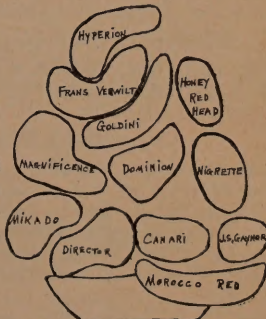 HYPERION
FRANS VERWILT
HONEY
RED
HEAD
GOLDINI
MAGNIFICENCE
DOMINION
NIGRETTE
MIKADO
DIRECTOR
CANARI
J.S. GAYNOR
MOROCCO RED